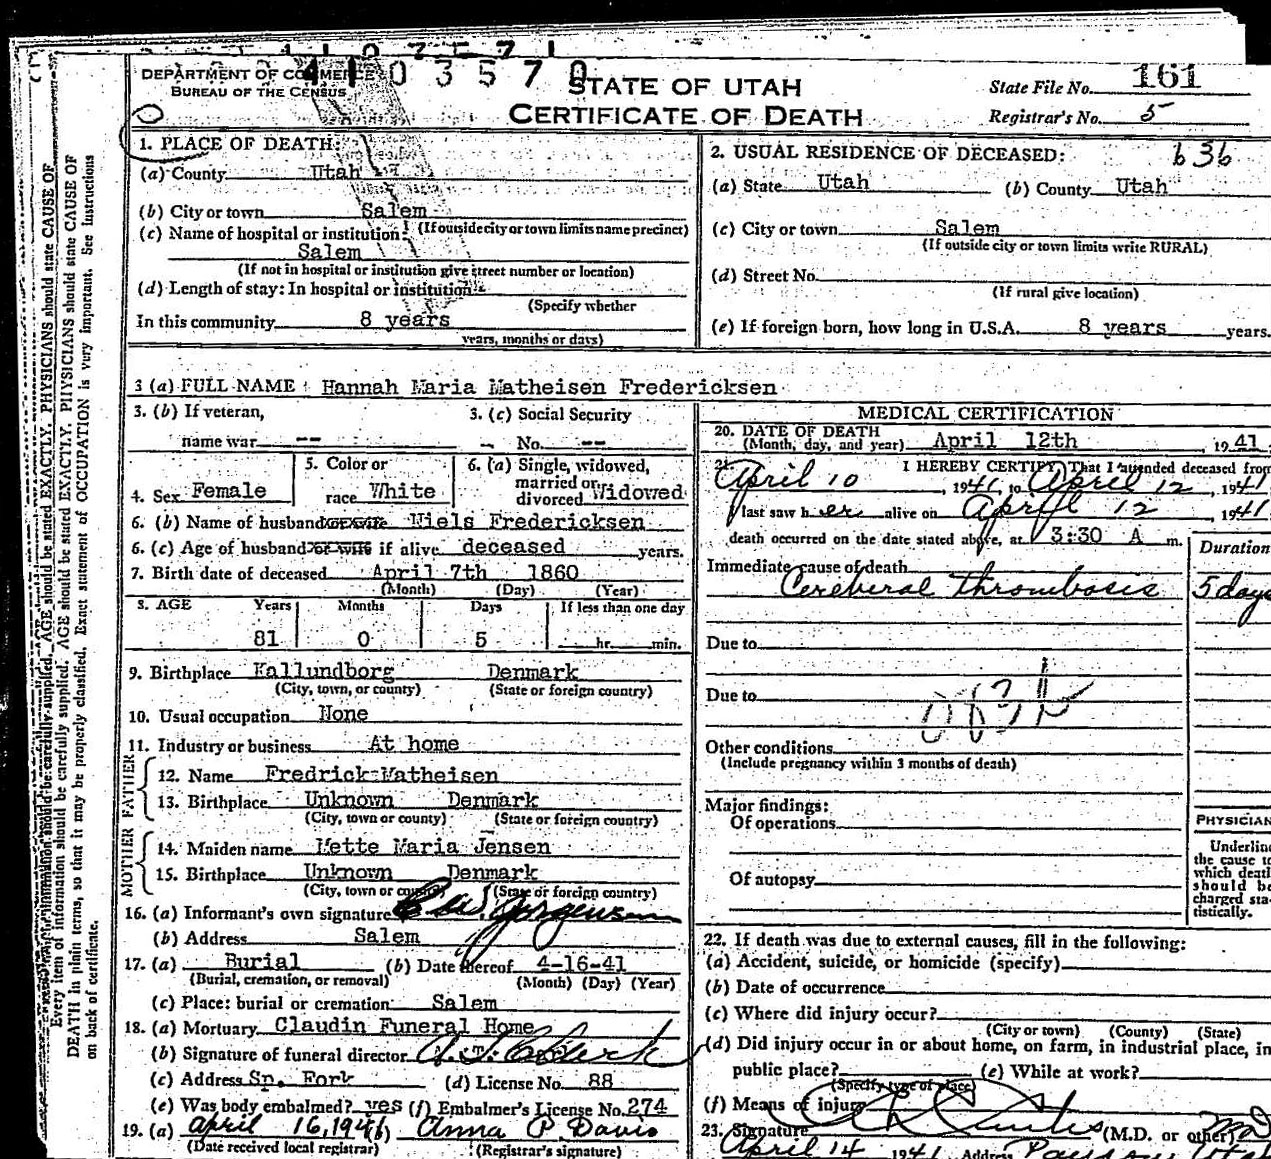 DEPARTMENT OF COMMERCE
BUREAU OF THE CENSUS
STATE OF UTAH
CERTIFICATE OF DEATH
State File No. 161
Registrar's No. 5
636
1. PLACE OF DEATH:
(a) County Utah
(b) City or town Salem
(If outside city or town limits name precinct)
(c) Name of hospital or institution:
Salem
(If not in hospital or institution give street number or location)
(d) Length of stay: In hospital or institution
(Specify whether
In this community 8 years
years, months or days)
2. USUAL RESIDENCE OF DECEASED:
(a) State Utah (b) County Utah
(c) City or town Salem
(If outside city or town limits write RURAL)
(d) Street No.
(If rural give location)
(e) If foreign born, how long in U.S.A. 8 years years.
3 (a) FULL NAME Hannah Maria Matheisen Fredericksen
3. (b) If veteran, 3. (c) Social Security
name war -- No. --
4. Sex Female
5. Color or race White
6. (a) Single, widowed, married or divorced Widowed
6. (b) Name of husband or wife Niels Fredericksen
6. (c) Age of husband or wife if alive deceased years.
7. Birth date of deceased April 7th 1860
(Month) (Day) (Year)
8. AGE Years Months Days If less than one day
81 0 5 hr. min.
9. Birthplace Kallundborg Denmark
(City, town, or county) (State or foreign country)
10. Usual occupation None
11. Industry or business At home
FATHER
12. Name Fredrick Matheisen
13. Birthplace Unknown Denmark
(City, town or county) (State or foreign country)
MOTHER
14. Maiden name Mette Maria Jensen
15. Birthplace Unknown Denmark
(City, town or county) (State or foreign country)
16. (a) Informant's own signature Jorgensen
(b) Address Salem
17. (a) Burial (b) Date thereof 4-16-41
(Burial, cremation, or removal) (Month) (Day) (Year)
(c) Place: burial or cremation Salem
18. (a) Mortuary Claudin Funeral Home
(b) Signature of funeral director
(c) Address Sp. Fork (d) License No. 88
(e) Was body embalmed? yes (f) Embalmer's License No. 274
19. (a) April 16, 1941 (b) Anna P. Davis
(Date received local registrar) (Registrar's signature)
MEDICAL CERTIFICATION
20. DATE OF DEATH
(Month, day, and year) April 12th 1941
21. I HEREBY CERTIFY, That I attended deceased from
April 10, 1941, to April 12, 1941
I last saw her alive on April 12 1941
death occurred on the date stated above, at 3:30 A m.
Duration
Immediate cause of death
Cerebral thrombosis 5 days
Due to
Due to
Other conditions
(Include pregnancy within 3 months of death)
Major findings:
Of operations
Of autopsy
PHYSICIAN
Underline
the cause to
which death
should be
charged sta-
tistically.
22. If death was due to external causes, fill in the following:
(a) Accident, suicide, or homicide (specify)
(b) Date of occurrence
(c) Where did injury occur?
(City or town) (County) (State)
(d) Did injury occur in or about home, on farm, in industrial place, in
public place? (e) While at work?
(Specify type of place)
(f) Means of injury
23. Signature (M.D. or other) MD
April 14 1941 Address Payson Utah
Every item of information should be carefully supplied. AGE should be stated EXACTLY. PHYSICIANS should state CAUSE OF
DEATH in plain terms, so that it may be properly classified. Exact statement of OCCUPATION is very important. See instructions
on back of certificate.